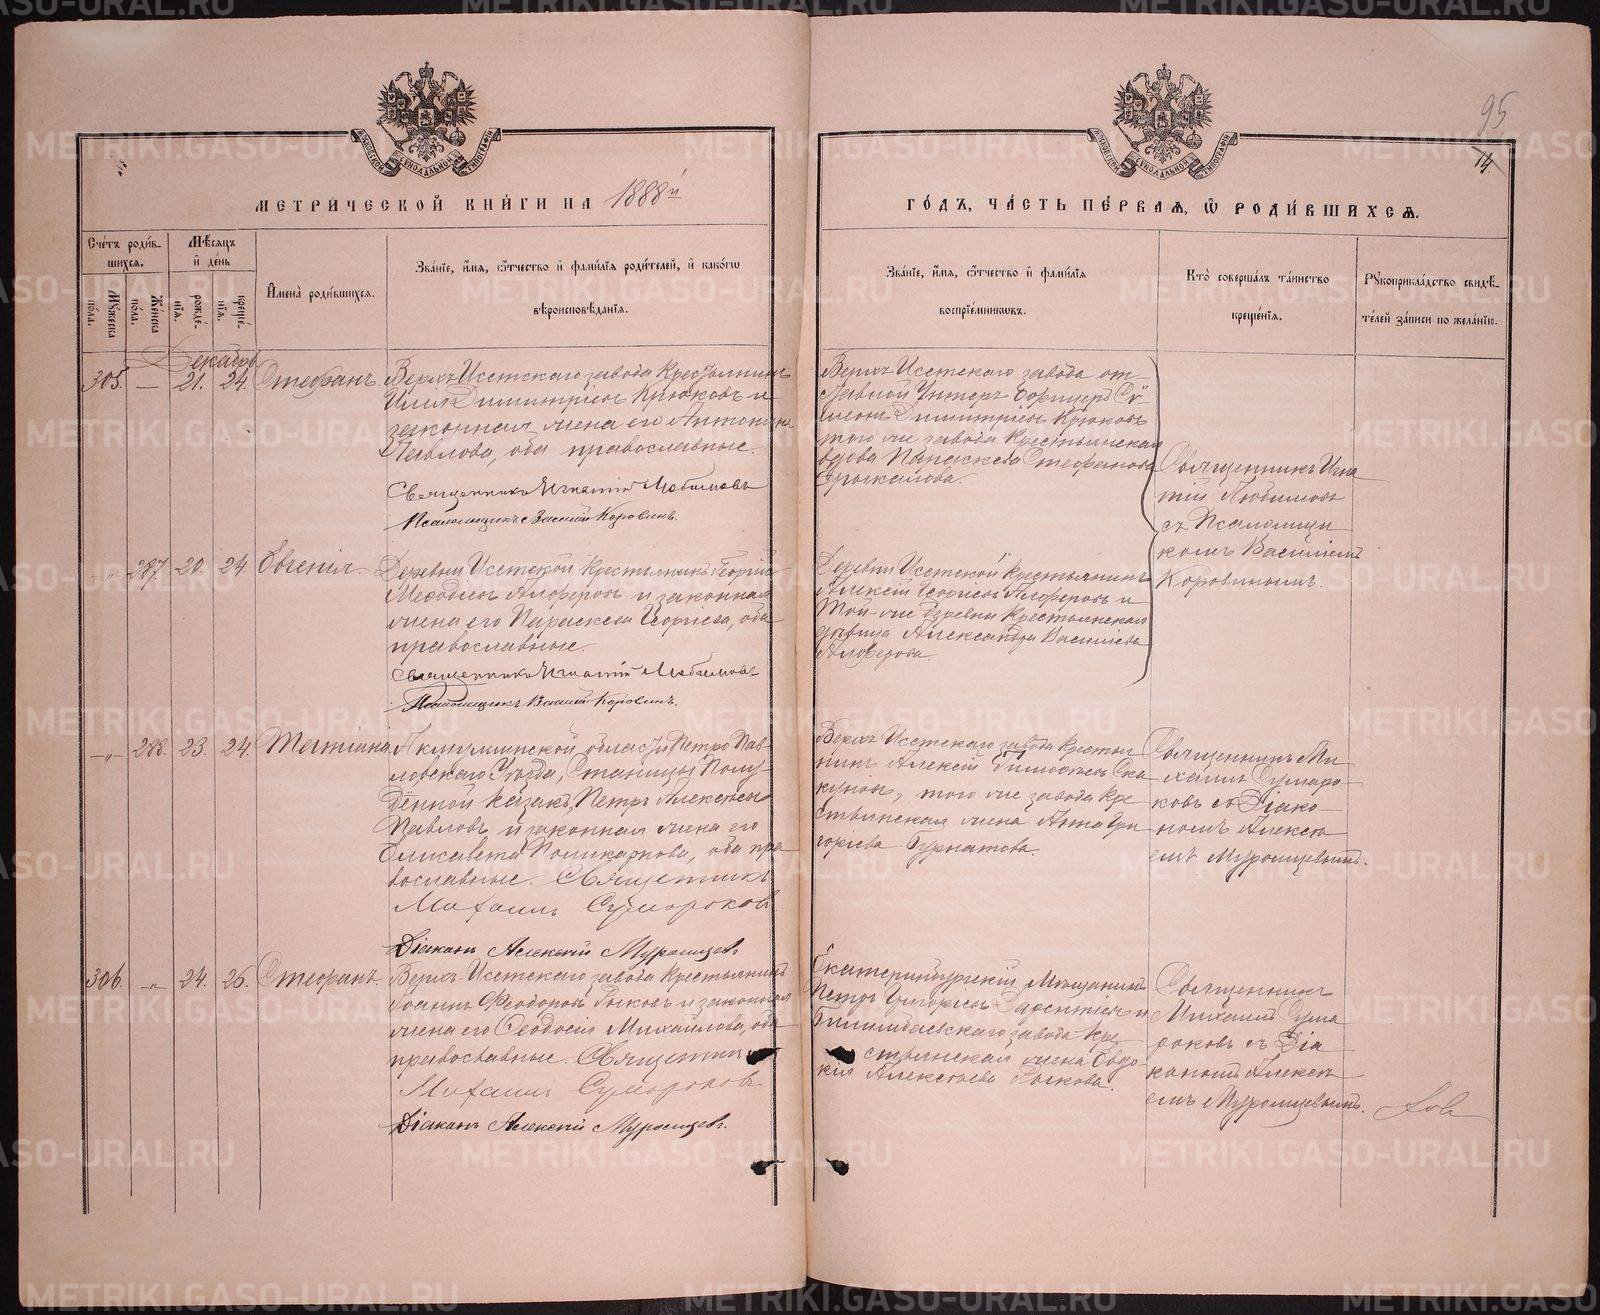 95
14.
МЕТРИЧЕСКОЙ КНИГИ НА 1888й
ГОДЪ, ЧАСТЬ ПЕРВАЯ, Ѡ РОДИВШИХСЯ.
Счетъ родившихся.
Мѣсяцъ и день
Мужеска пола.
Женска пола.
рожденія.
крещенія.
Имена родившихся.
Званіе, имя, отчество и фамилія родителей, и какогѡ
вѣроисповѣданія.
Званіе, имя, отчество и фамилія
воспріемникѡвъ.
Кто совершалъ таинство
крещенія.
Рукоприкладство свидѣ-
телей записи по желанію.
Декабрь
305. — 21. 24. Стефанъ.
Верхъ Исетскаго завода крестьянинъ
Илія Димитріевъ Крюковъ и
законная жена его Антонина
Павлова, оба православные.
Священникъ Игнатій Любимовъ
Псаломщикъ Василій Коровинъ.
Верхъ Исетскаго завода от-
ставной Унтеръ Офицеръ Си-
меонъ Димитріевъ Крюковъ
того же завода Крестьянская
вдова Параскева Стефанова
Священникъ Игна
тій Любимовъ
съ Псаломщи
комъ Василіемъ
Коровинымъ.
287. 20. 24. Евгенія.
Деревни Исетской Крестьянинъ Георгій
Меѳодіевъ Алферовъ и законная
жена его Параскева Георгіева, оба
православные.
Священникъ Игнатій Любимовъ
Псаломщикъ Василій Коровинъ.
Деревни Исетской Крестьянинъ
Алексій Георгіевъ Алферовъ и
той-же деревни Крестьянская
дѣвица Александра Василіева
Алферова.
288. 23. 24. Татіана.
Акмолинской области Петропав-
ловскаго Уѣзда, Станицы Полу-
денной казакъ, Петръ Алексѣевъ
Павловъ и законная жена его
Елисавета Поликарпова, оба пра
вославные. Священникъ
Михаилъ Сумароковъ
Діаконъ Алексій Муромцевъ.
Верхъ Исетскаго завода Крестья
нинъ Алексій Тимоѳеевъ Ска
куновъ, того же завода Кре
стьянская жена Анна Гри
горіева Бурматова.
Священникъ Ми
хаилъ Сумаро
ковъ съ Діако
номъ Алексі
емъ Муромцевымъ.
306. 24. 26. Стефанъ.
Верхъ Исетскаго завода Крестьянинъ
Іоаннъ Ѳеодоровъ Рожковъ и законная
жена его Ѳеодосія Михайлова, оба
православные. Священникъ
Михаилъ Сумароковъ
Діаконъ Алексій Муромцевъ.
Екатеринбургскій Мѣщанинъ
Петръ Григорьевъ Лаврентіевъ и
Билимбаевскаго завода Кре
стьянская жена Евдо
кія Алексѣева Рожкова.
Священникъ
Михаилъ Сума
роковъ съ Діа
кономъ Алексі
емъ Муромцевымъ.
METRIKI.GASO-URAL.RU